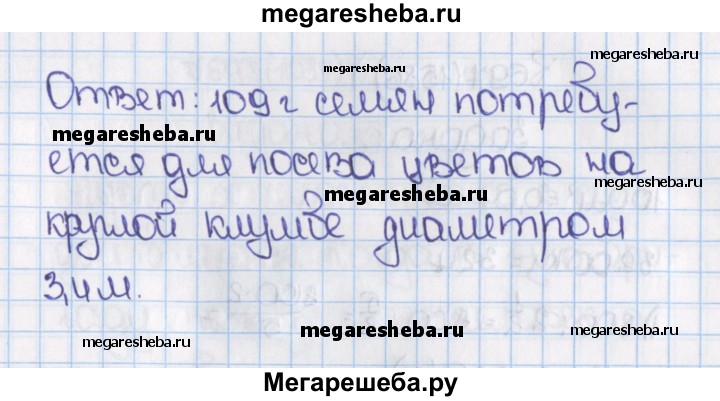 megaresheba.ru
megaresheba.ru
megaresheba.ru
Ответ: 109 г семян потребу-
megaresheba.ru
ется для посева цветов на
megaresheba.ru
megaresheba.ru
круглой клумбе диаметром
3,4 м.
megaresheba.ru
megaresheba.ru
megaresheba.ru
Мегарешеба.ру